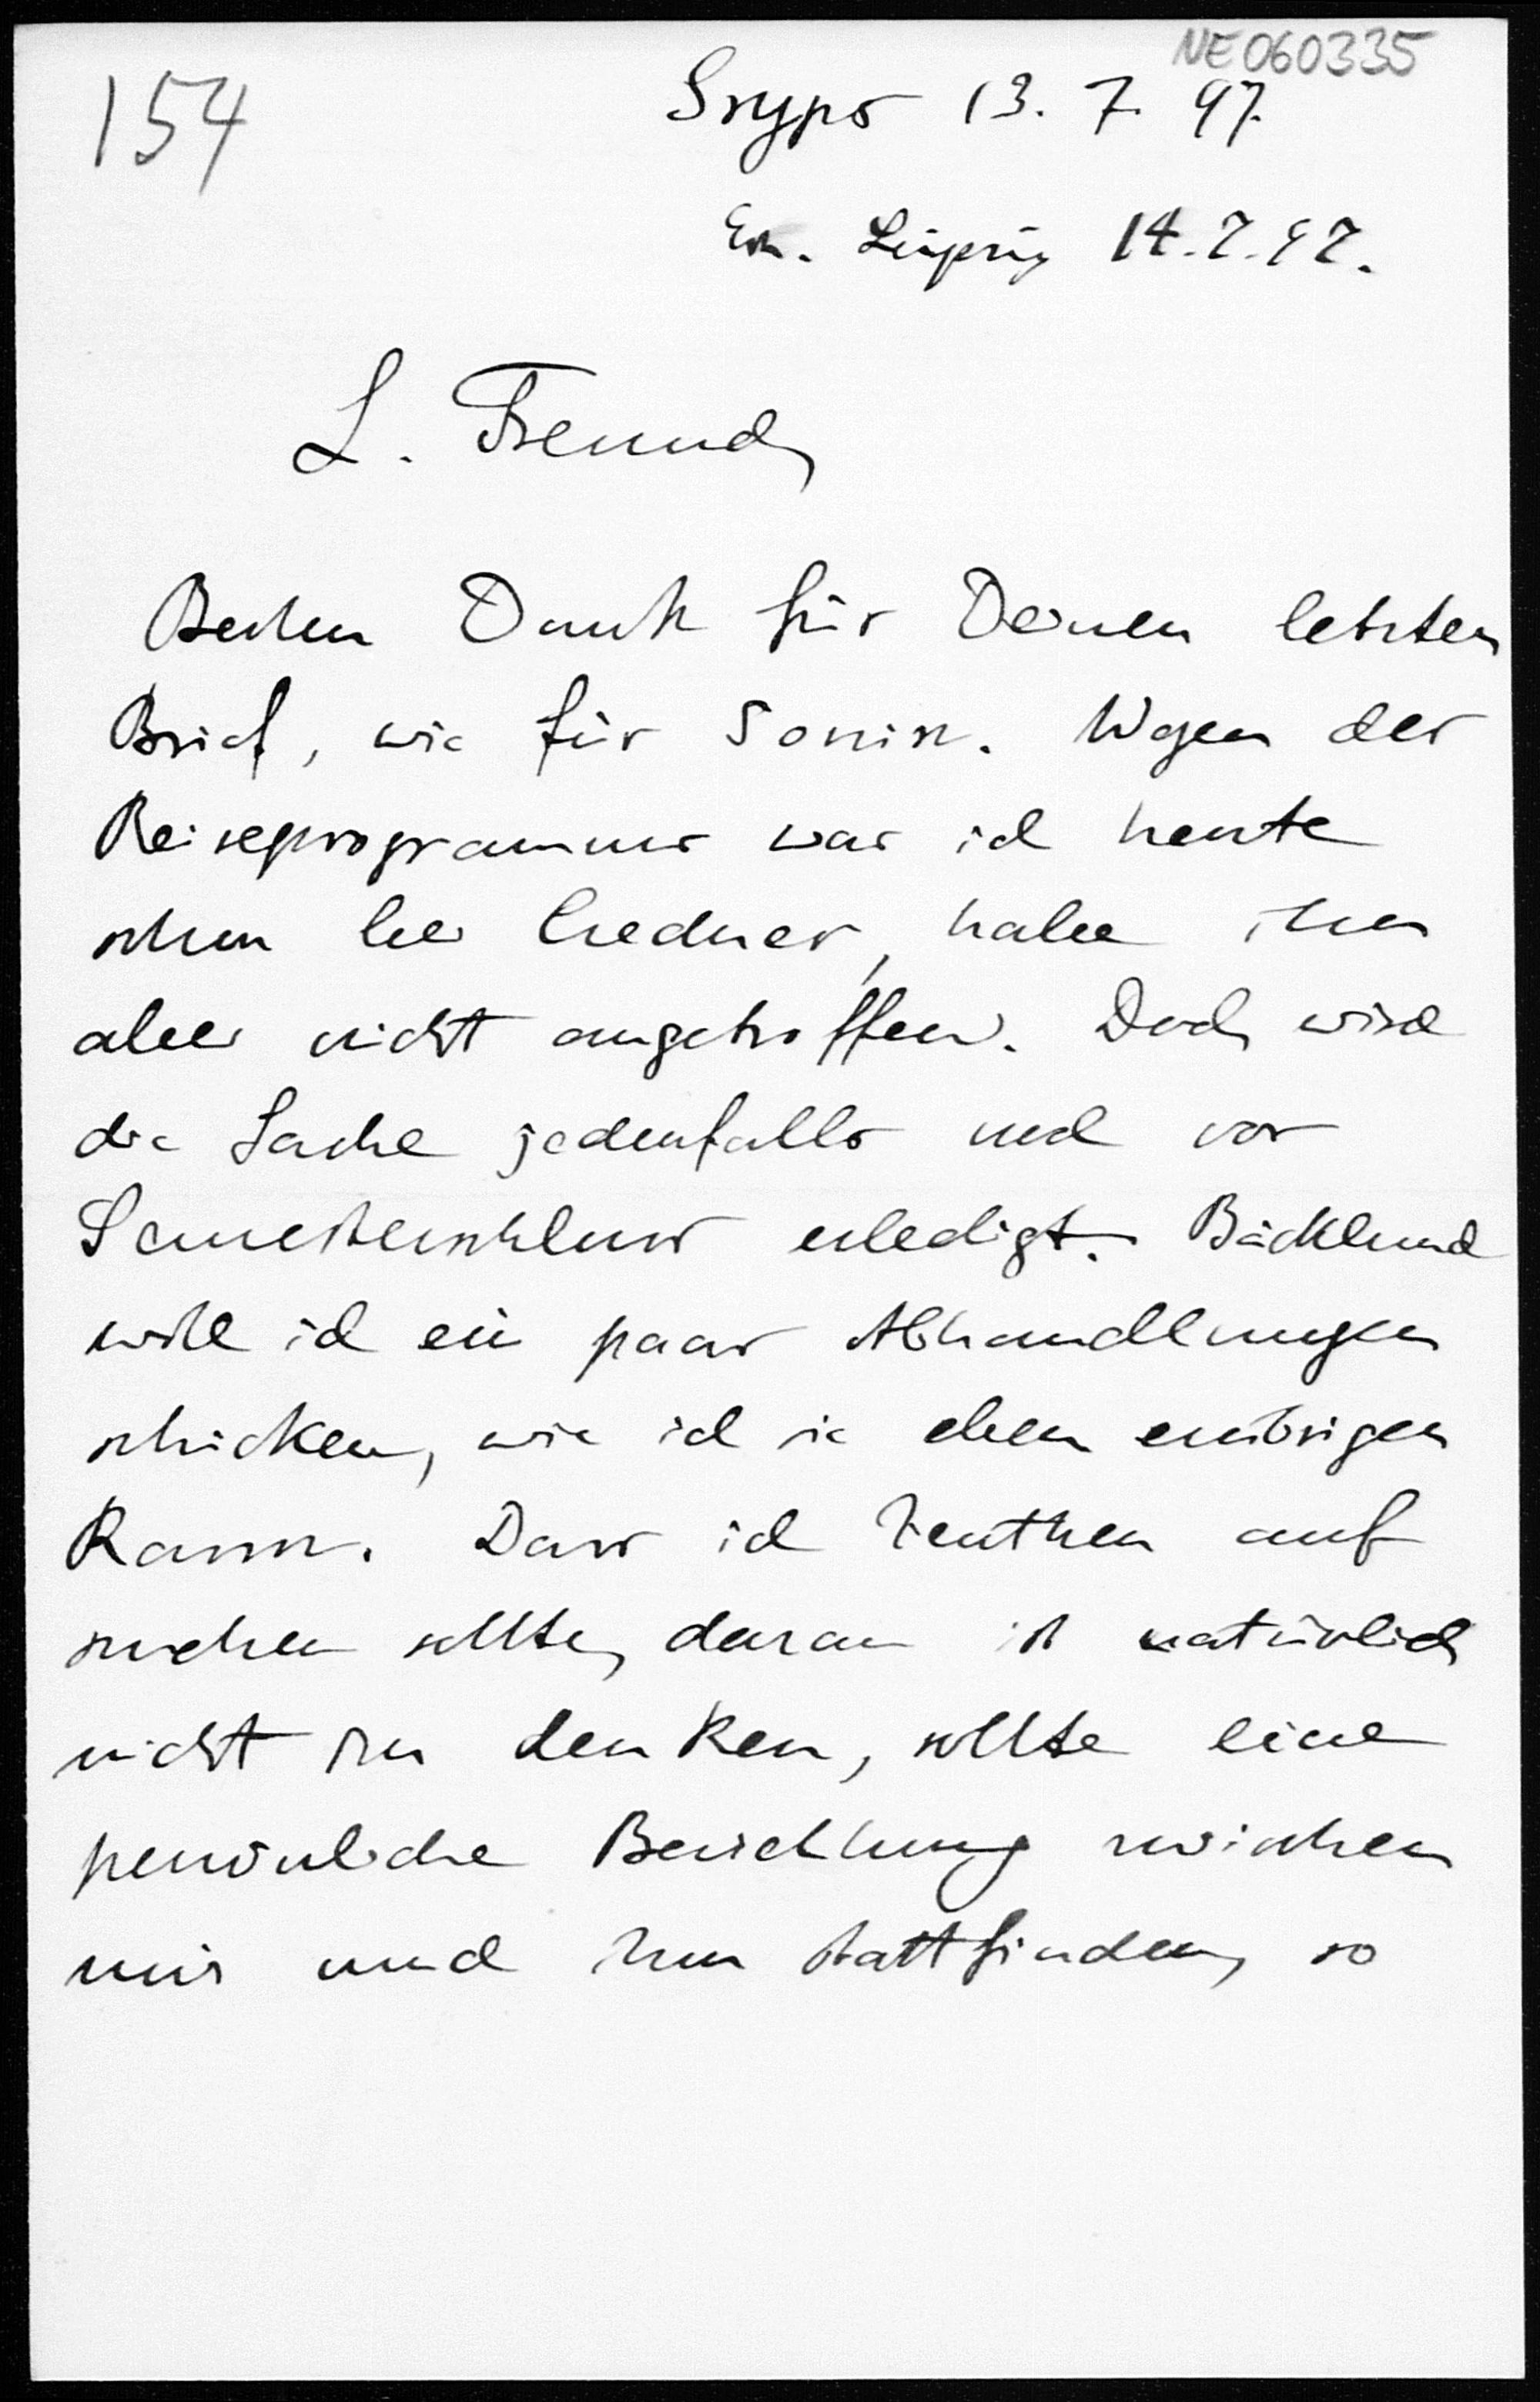 NE060335
154
13. 7. 97.
Em. Leipzig 14.7.97.
L. Freund,
Besten Dank für Deinen letzten
Brief, wie für Sonin. Wegen der
Reiseprogramms war ich heute
schon bei Credner, habe ihn
aber nicht angetroffen. Doch wird
die Sache jedenfalls noch vor
Semesterschluss erledigt. Bäcklund
will ich ein paar Abhandlungen
schicken, wie ich sie eben erübrigen
kann. Dass ich Zeuthen auf
suchen sollte, daran ist natürlich
nicht zu denken, sollte eine
persönliche Beziehung zwischen
mir und ihm stattfinden, so